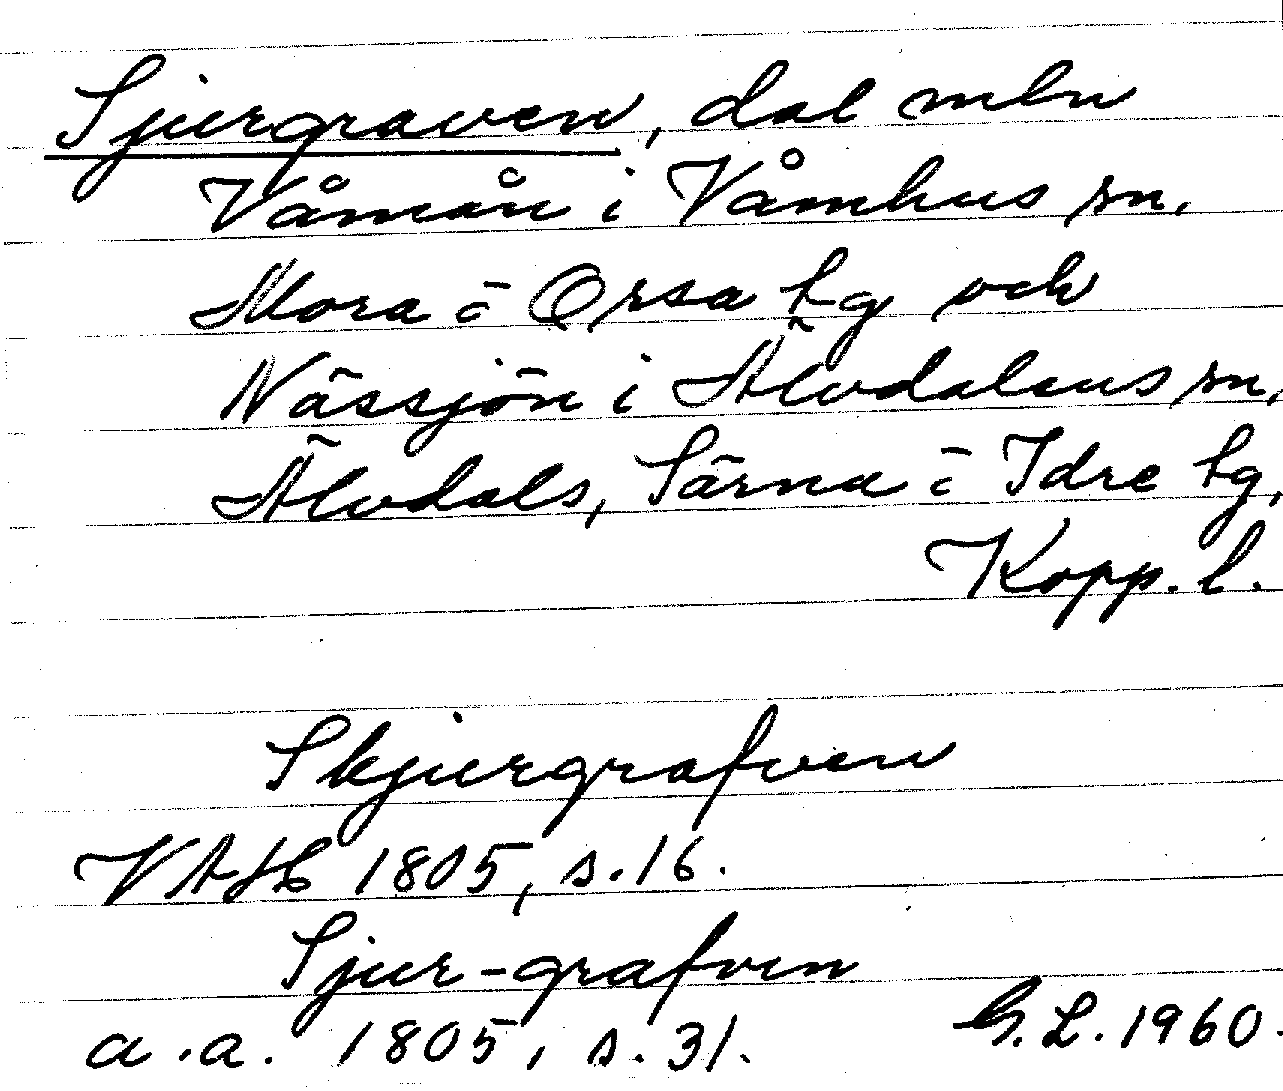 Sjurgraven, dal mln
Våmån i Våmhus sn,
Mora o Orsa tg och
Nässjön i Älvdalens sn,
Älvdals, Särna o Idre tg,
Kopp. l.
Skjurgrafven
VAH 1805, s. 16.
Sjur-grafven
a.a. 1805, s. 31.
G.L. 1960.